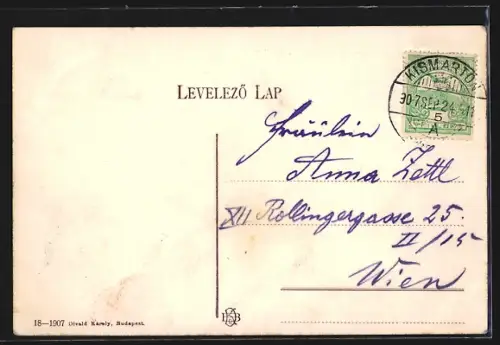 LEVELEZŐ LAP
KISMARTON
907 SEP 24
5
A
Fräulein
Anna Zettl
XII Rollingergasse 25.
II/15
Wien
18—1907 Divald Károly, Budapest.